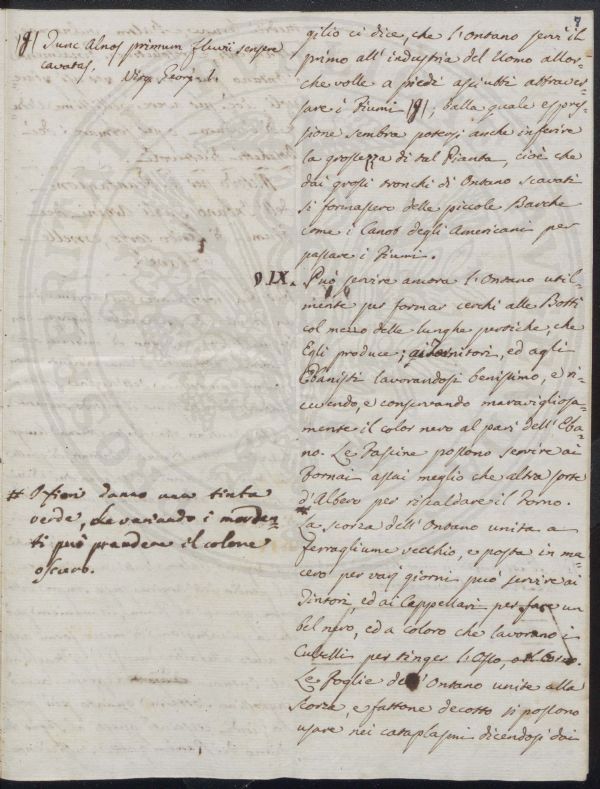 7
|g| Tunc Alnos primum fluvii sensere
cavatas.
Virg. Georg. l.
# I fiori danno una tinta
verde, che variando i morden-
ti può prendere il colore
oscuro.
gilio ci dice, che l'Ontano servì il
primo all'industria del Uomo allor-
che volle a piedi asciutti attraver-
sare i Fiumi |g|, dalla quale espres-
sione sembra potersi anche inferire
la grossezza di tal Pianta, cioè che
dai grossi tronchi di Ontano scavati
si formassero delle piccole Barche
come i Canob degli Americani per
passare i Fiumi.
IX. Può servire ancora l'Ontano util-
mente per formar cerchi alle Botti
col mezzo delle lunghe pertiche, che
Egli produce; ai Tornitori, ed agli
Ebanisti lavorandosi benissimo, e ri-
cevendo, e conservando maravigliosa-
mente il color nero al pari dell'Eba-
no. Le Fascine possono servire ai
Fornai assai meglio che altra sorte
d'Albero per riscaldare il Forno.
#
La scorza dell'Ontano unita a
ferragliume vecchio, e posta in ma-
cero per varj giorni può servire ai
Tintori, ed ai Cappellari per fare un
bel nero, ed a coloro che lavorano i
Cultelli per tinger l'Osso, o il Corno.
Le foglie dell'Ontano unite alla
scorza, e fattone decotto si possono
usare nei cataplasmi dicendosi dai